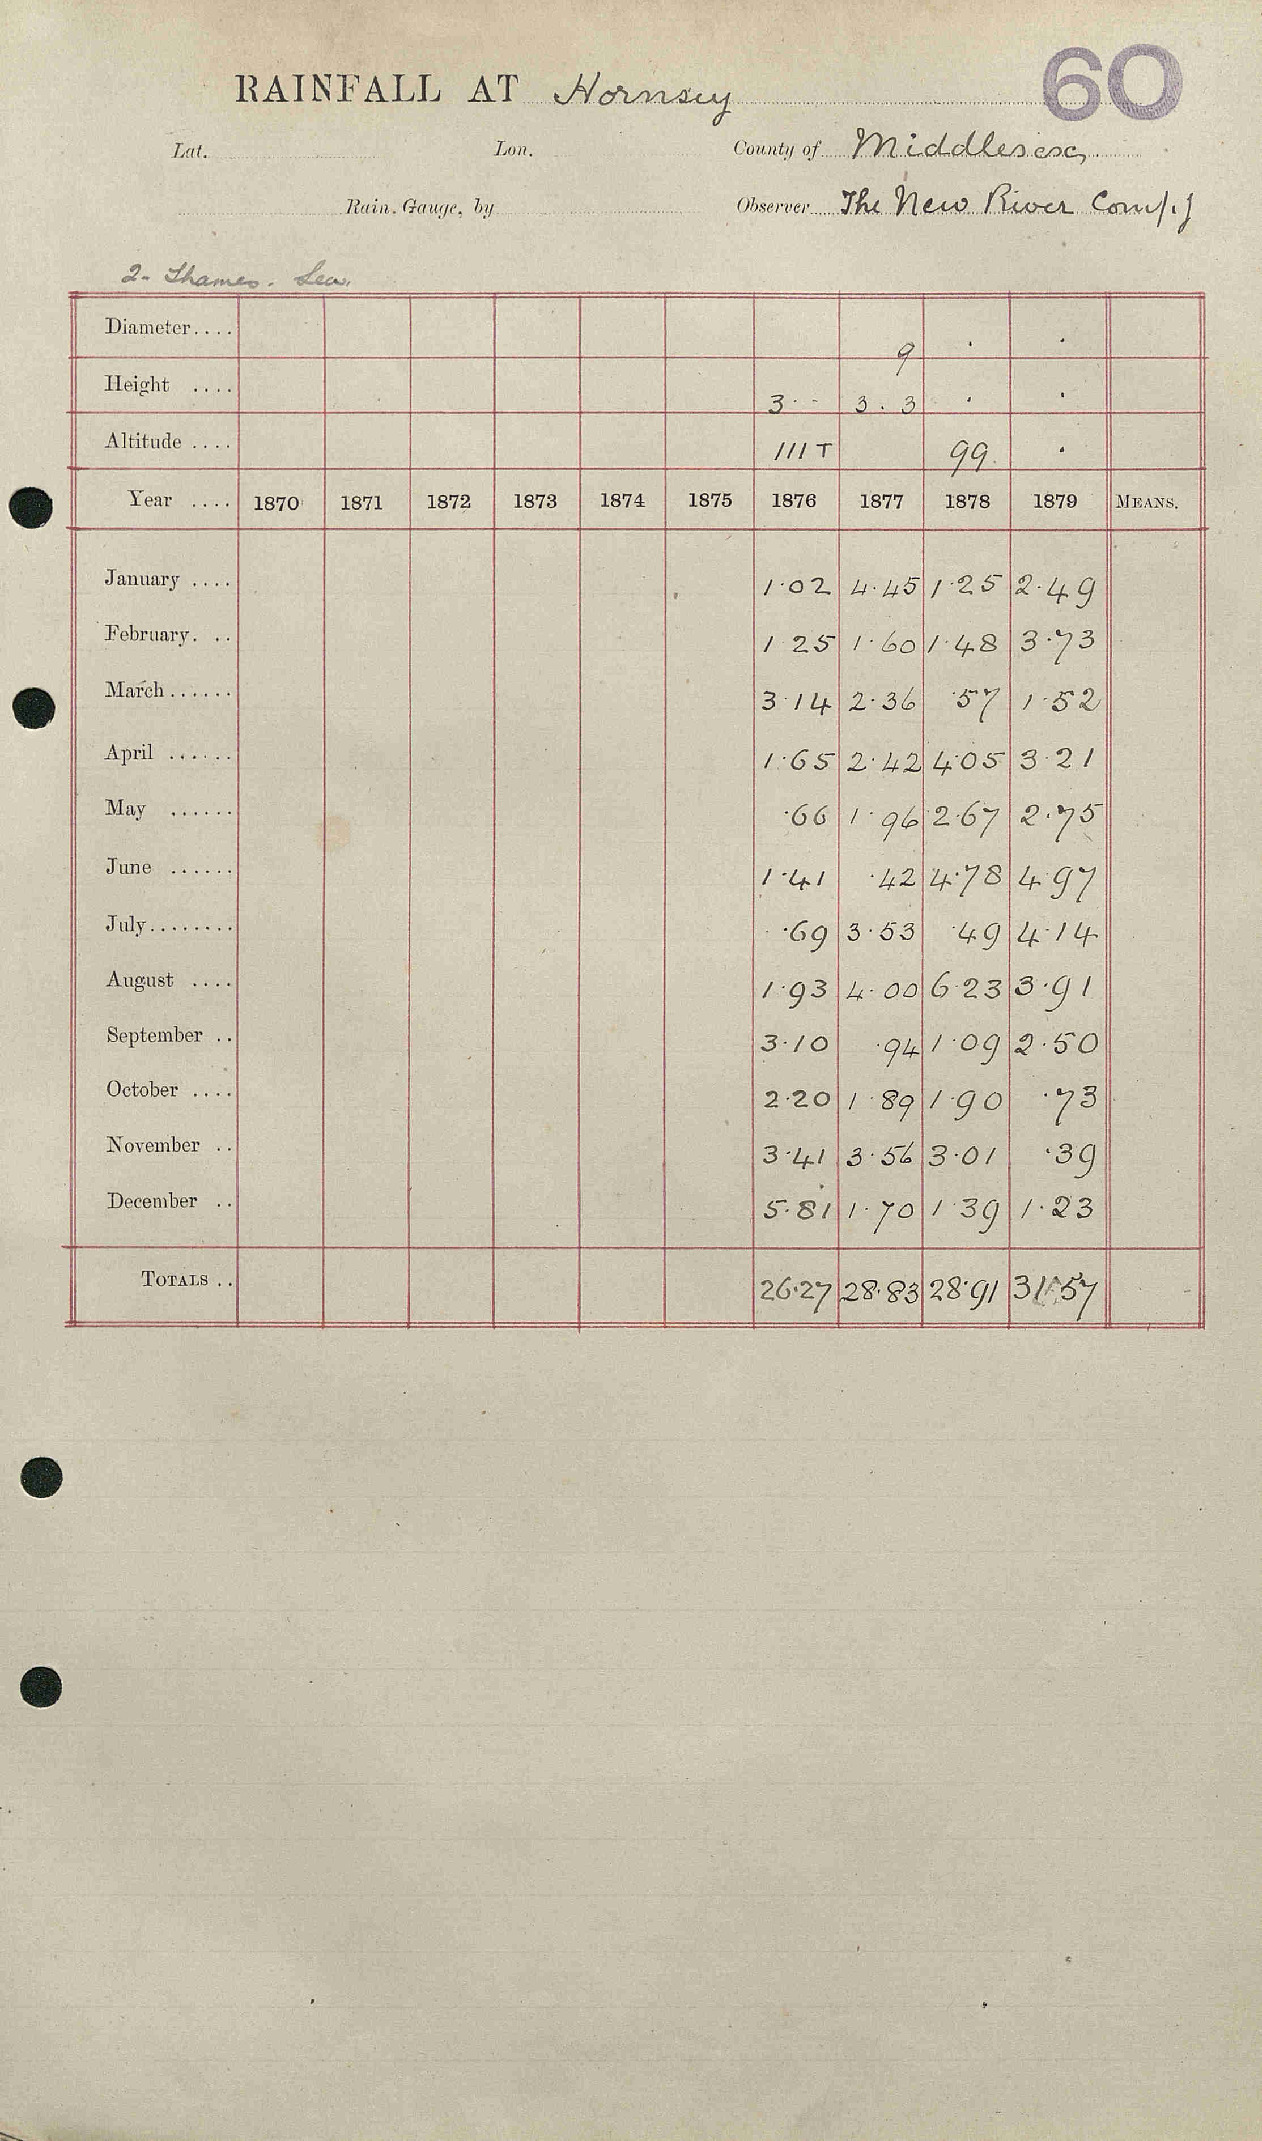 60
RAINFALL AT Hornsey
Lat. Lon. County of Middlesex
Rain Gauge, by Observer The New River Comp.y
2- Thames. Lea.
Diameter.... 9 · ·
Height .... 3 - - 3 . 3 · ·
Altitude .... 111 T 99. ·
Year .... 1870 1871 1872 1873 1874 1875 1876 1877 1878 1879 MEANS.
January .... 1·02 4·45 1·25 2·49
February. .. 1 25 1·60 1·48 3·73
March...... 3·14 2·36 ·57 1·52
April ...... 1·65 2·42 4·05 3·21
May ...... ·66 1·96 2·67 2·75
June ...... 1·41 ·42 4·78 4·97
July........ ·69 3·53 ·49 4·14
August .... 1·93 4·00 6·23 3·91
September .. 3·10 ·94 1·09 2·50
October .... 2·20 1·89 1·90 ·73
November .. 3·41 3·56 3·01 ·39
December .. 5·81 1·70 1·39 1·23
TOTALS .. 26·27 28·83 28·91 31·57